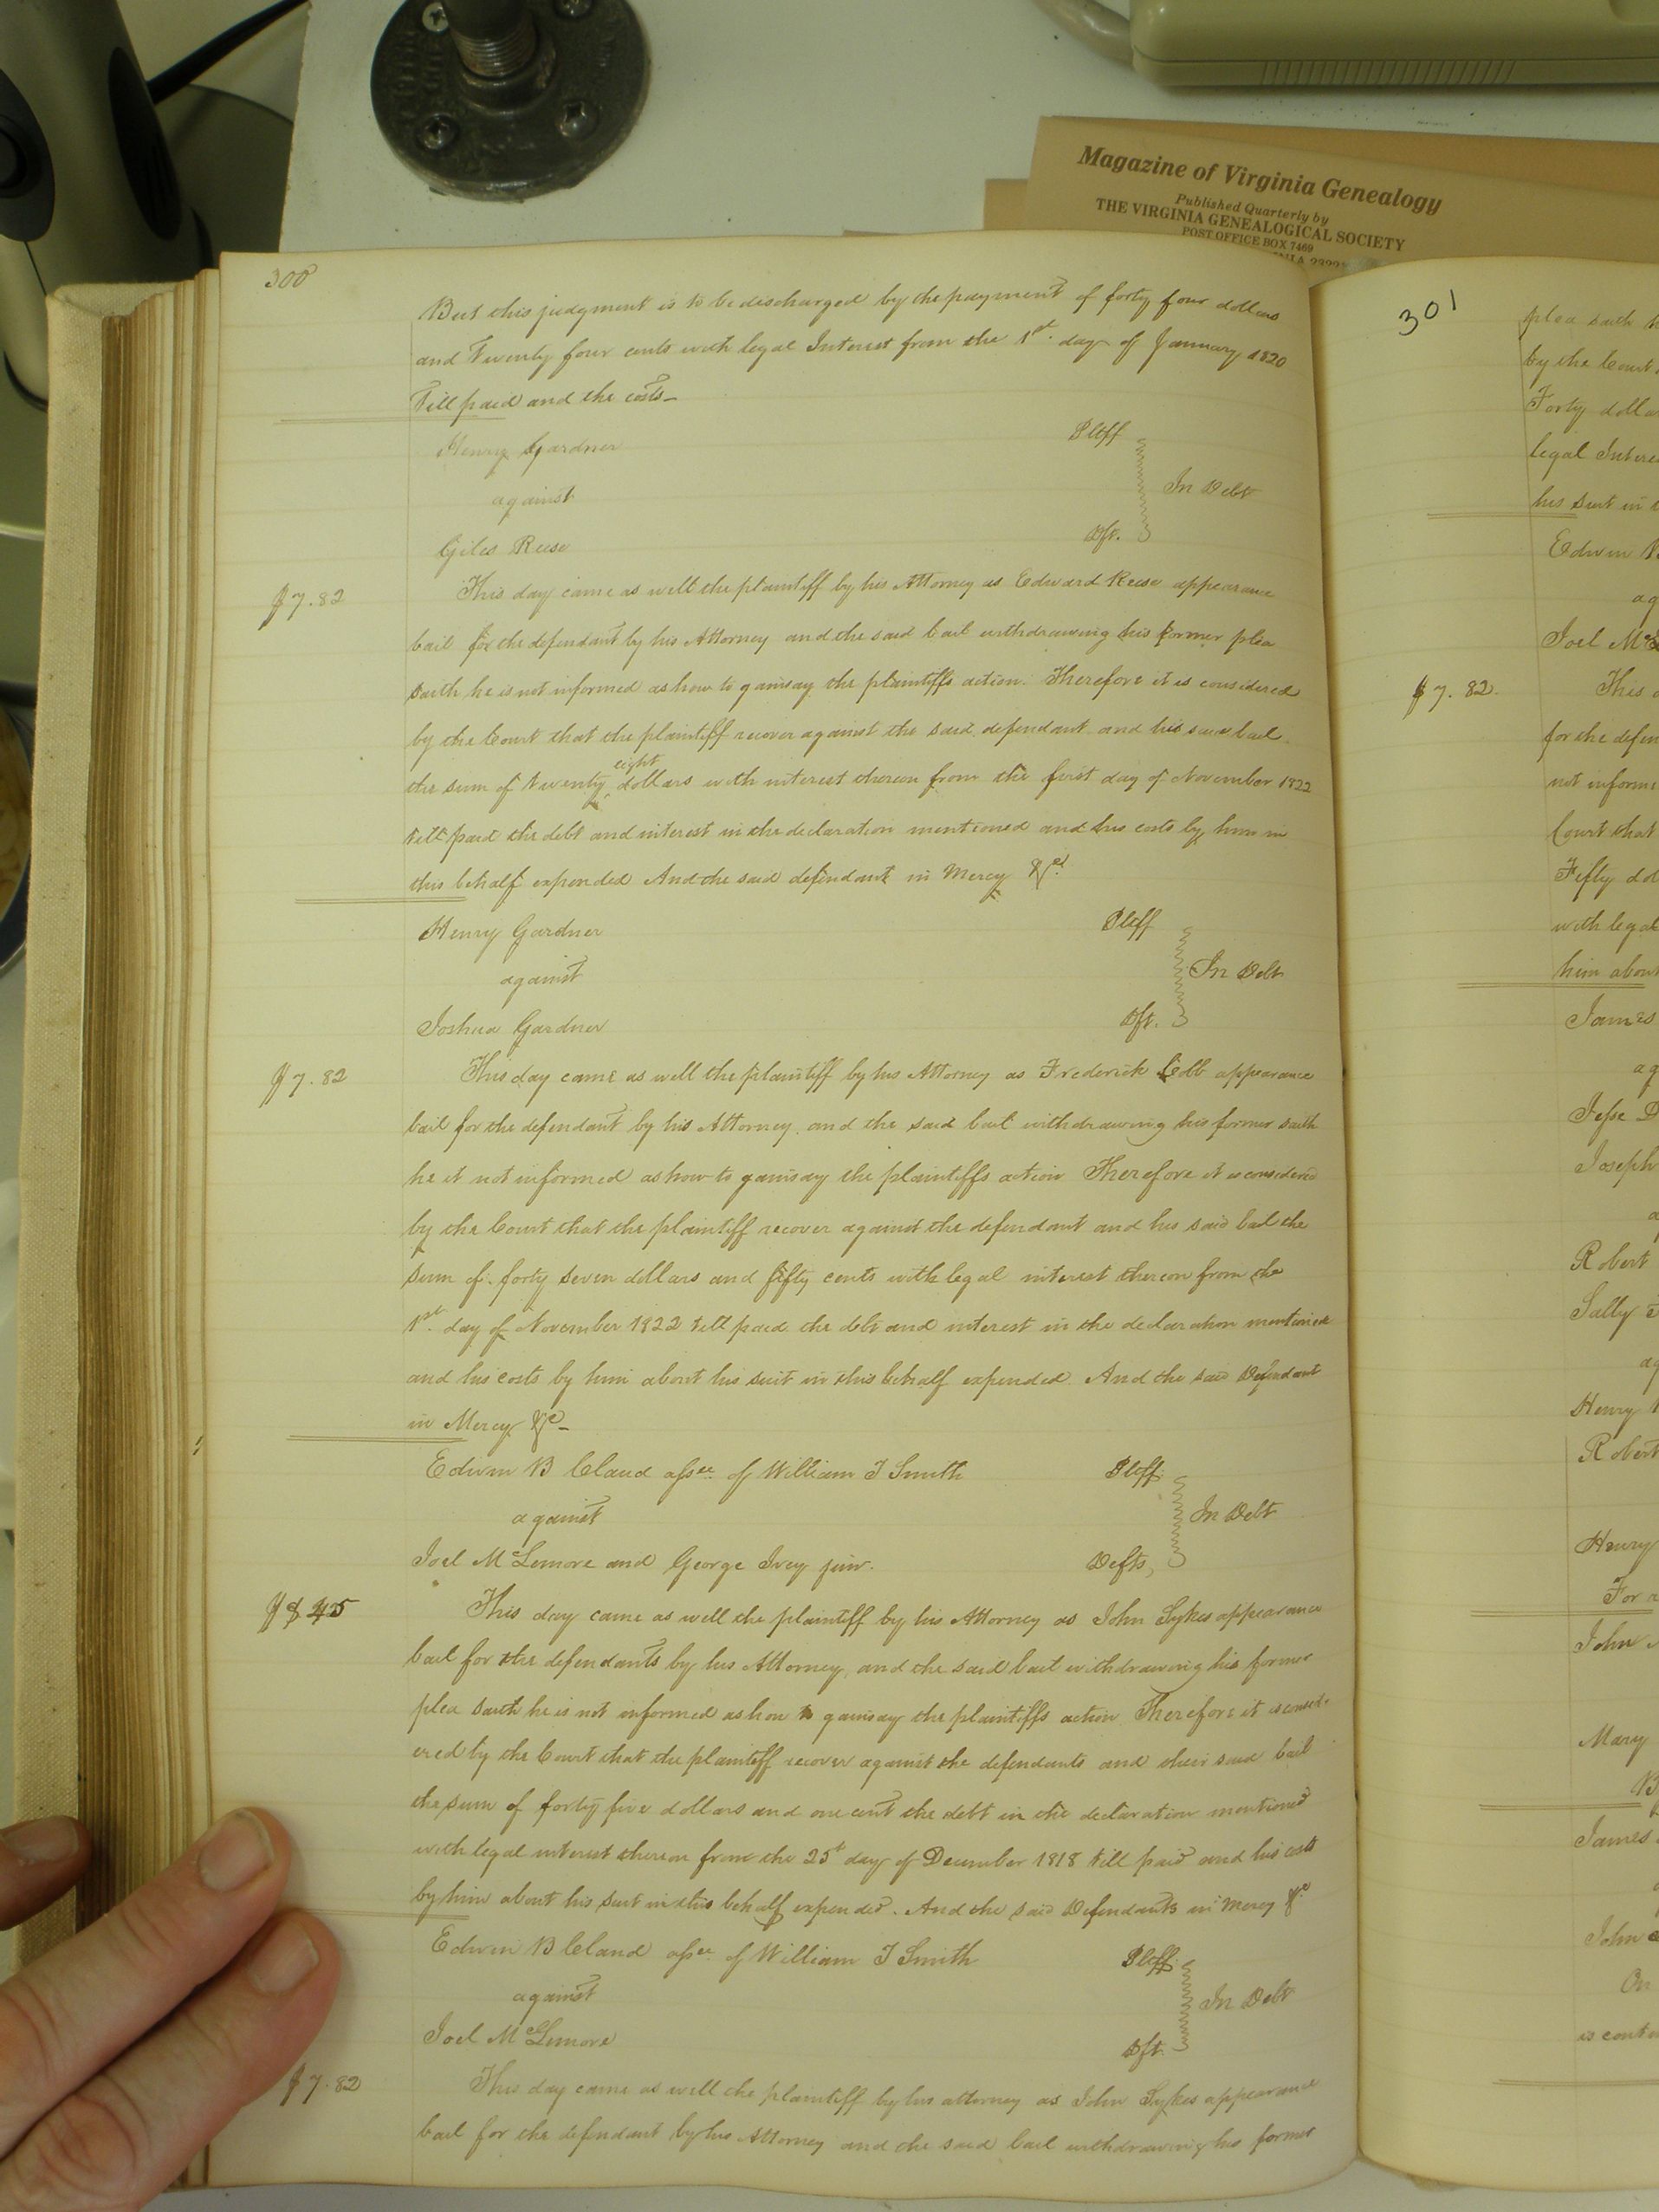 Magazine of Virginia Genealogy
Published Quarterly by
THE VIRGINIA GENEALOGICAL SOCIETY
POST OFFICE BOX 7469
300
But this judgment is to be discharged by the payment of forty four dollars
and Twenty four cents with legal Interest from the 1st. day of January 1820
Till paid and the costs_
Henry Gardner Pltff
against In Debt
Giles Reese Dft.
$7.82 This day came as well the plaintiff by his Attorney as Edward Reese appearance
bail for the defendant by his Attorney and the said bail withdrawing his former plea
saith he is not informed as how to gainsay the plaintiffs action. Therefore it is considered
by the Court that the plaintiff recover against the said defendant and his said bail
the sum of twenty eight dollars with interest thereon from the first day of November 1822
till paid the debt and interest in the declaration mentioned and his costs by him in
this behalf expended And the said defendant in Mercy &c.
Henry Gardner Pltff
against In Debt
Joshua Gardner Dft.
$7.82 This day came as well the plaintiff by his Attorney as Frederick Cobb appearance
bail for the defendant by his Attorney and the said bail withdrawing his former saith
he it not informed as how to gainsay the plaintiffs action Therefore it is considered
by the Court that the plaintiff recover against the defendant and his said bail the
sum of forty seven dollars and fifty cents with legal interest thereon from the
1st. day of November 1822 till paid the debt and interest in the declaration mentioned
and his costs by him about his suit in this behalf expended. And the said Defendant
in Mercy &c_
Edwin B Claud assee. of William T Smith Pltff.
against In Debt
Joel McLemore and George Ivey junr. Defts,
This day came as well the plaintiff by his Attorney as John Sykes appearance
bail for the defendants by his Attorney, and the said bail withdrawing his former
plea saith he is not informed as how to gainsay the plaintiffs action Therefore it is consid-
ered by the Court that the plaintiff recover against the defendants and their said bail
the sum of forty five dollars and one cent the debt in the declaration mentioned
with legal interest thereon from the 25t day of December 1818 till paid and his costs
by him about his suit in this behalf expended. And the said Defendants in Mercy &c
Edwin B Claud assee. of William T Smith Pltff.
against In Debt
Joel McLemore Dft.
$7.82 This day came as well the plaintiff by his attorney as John Sykes appearance
bail for the defendant by his Attorney and the said bail withdrawing his former
301
plea saith
by the Court
Forty dolla
legal Intere
his suit in
Edwin B
ag
Joel Mc
$7.82. This
for the defen
not inform
Court that
Fifty dol
with legal
him about
James
ag
Jesse
Joseph
Robert
Sally
ag
Henry
Robert
Henry
For
John
Mary
B
James
John
On
is cont